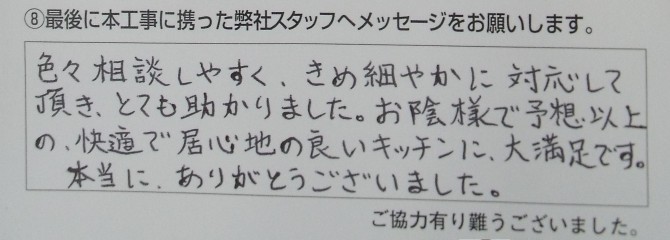 ⑧最後に本工事に携った弊社スタッフへメッセージをお願いします。
色々相談しやすく、きめ細やかに対応して
頂き、とても助かりました。お陰様で予想以上
の、快適で居心地の良いキッチンに、大満足です。
本当に、ありがとうございました。
ご協力有り難うございました。